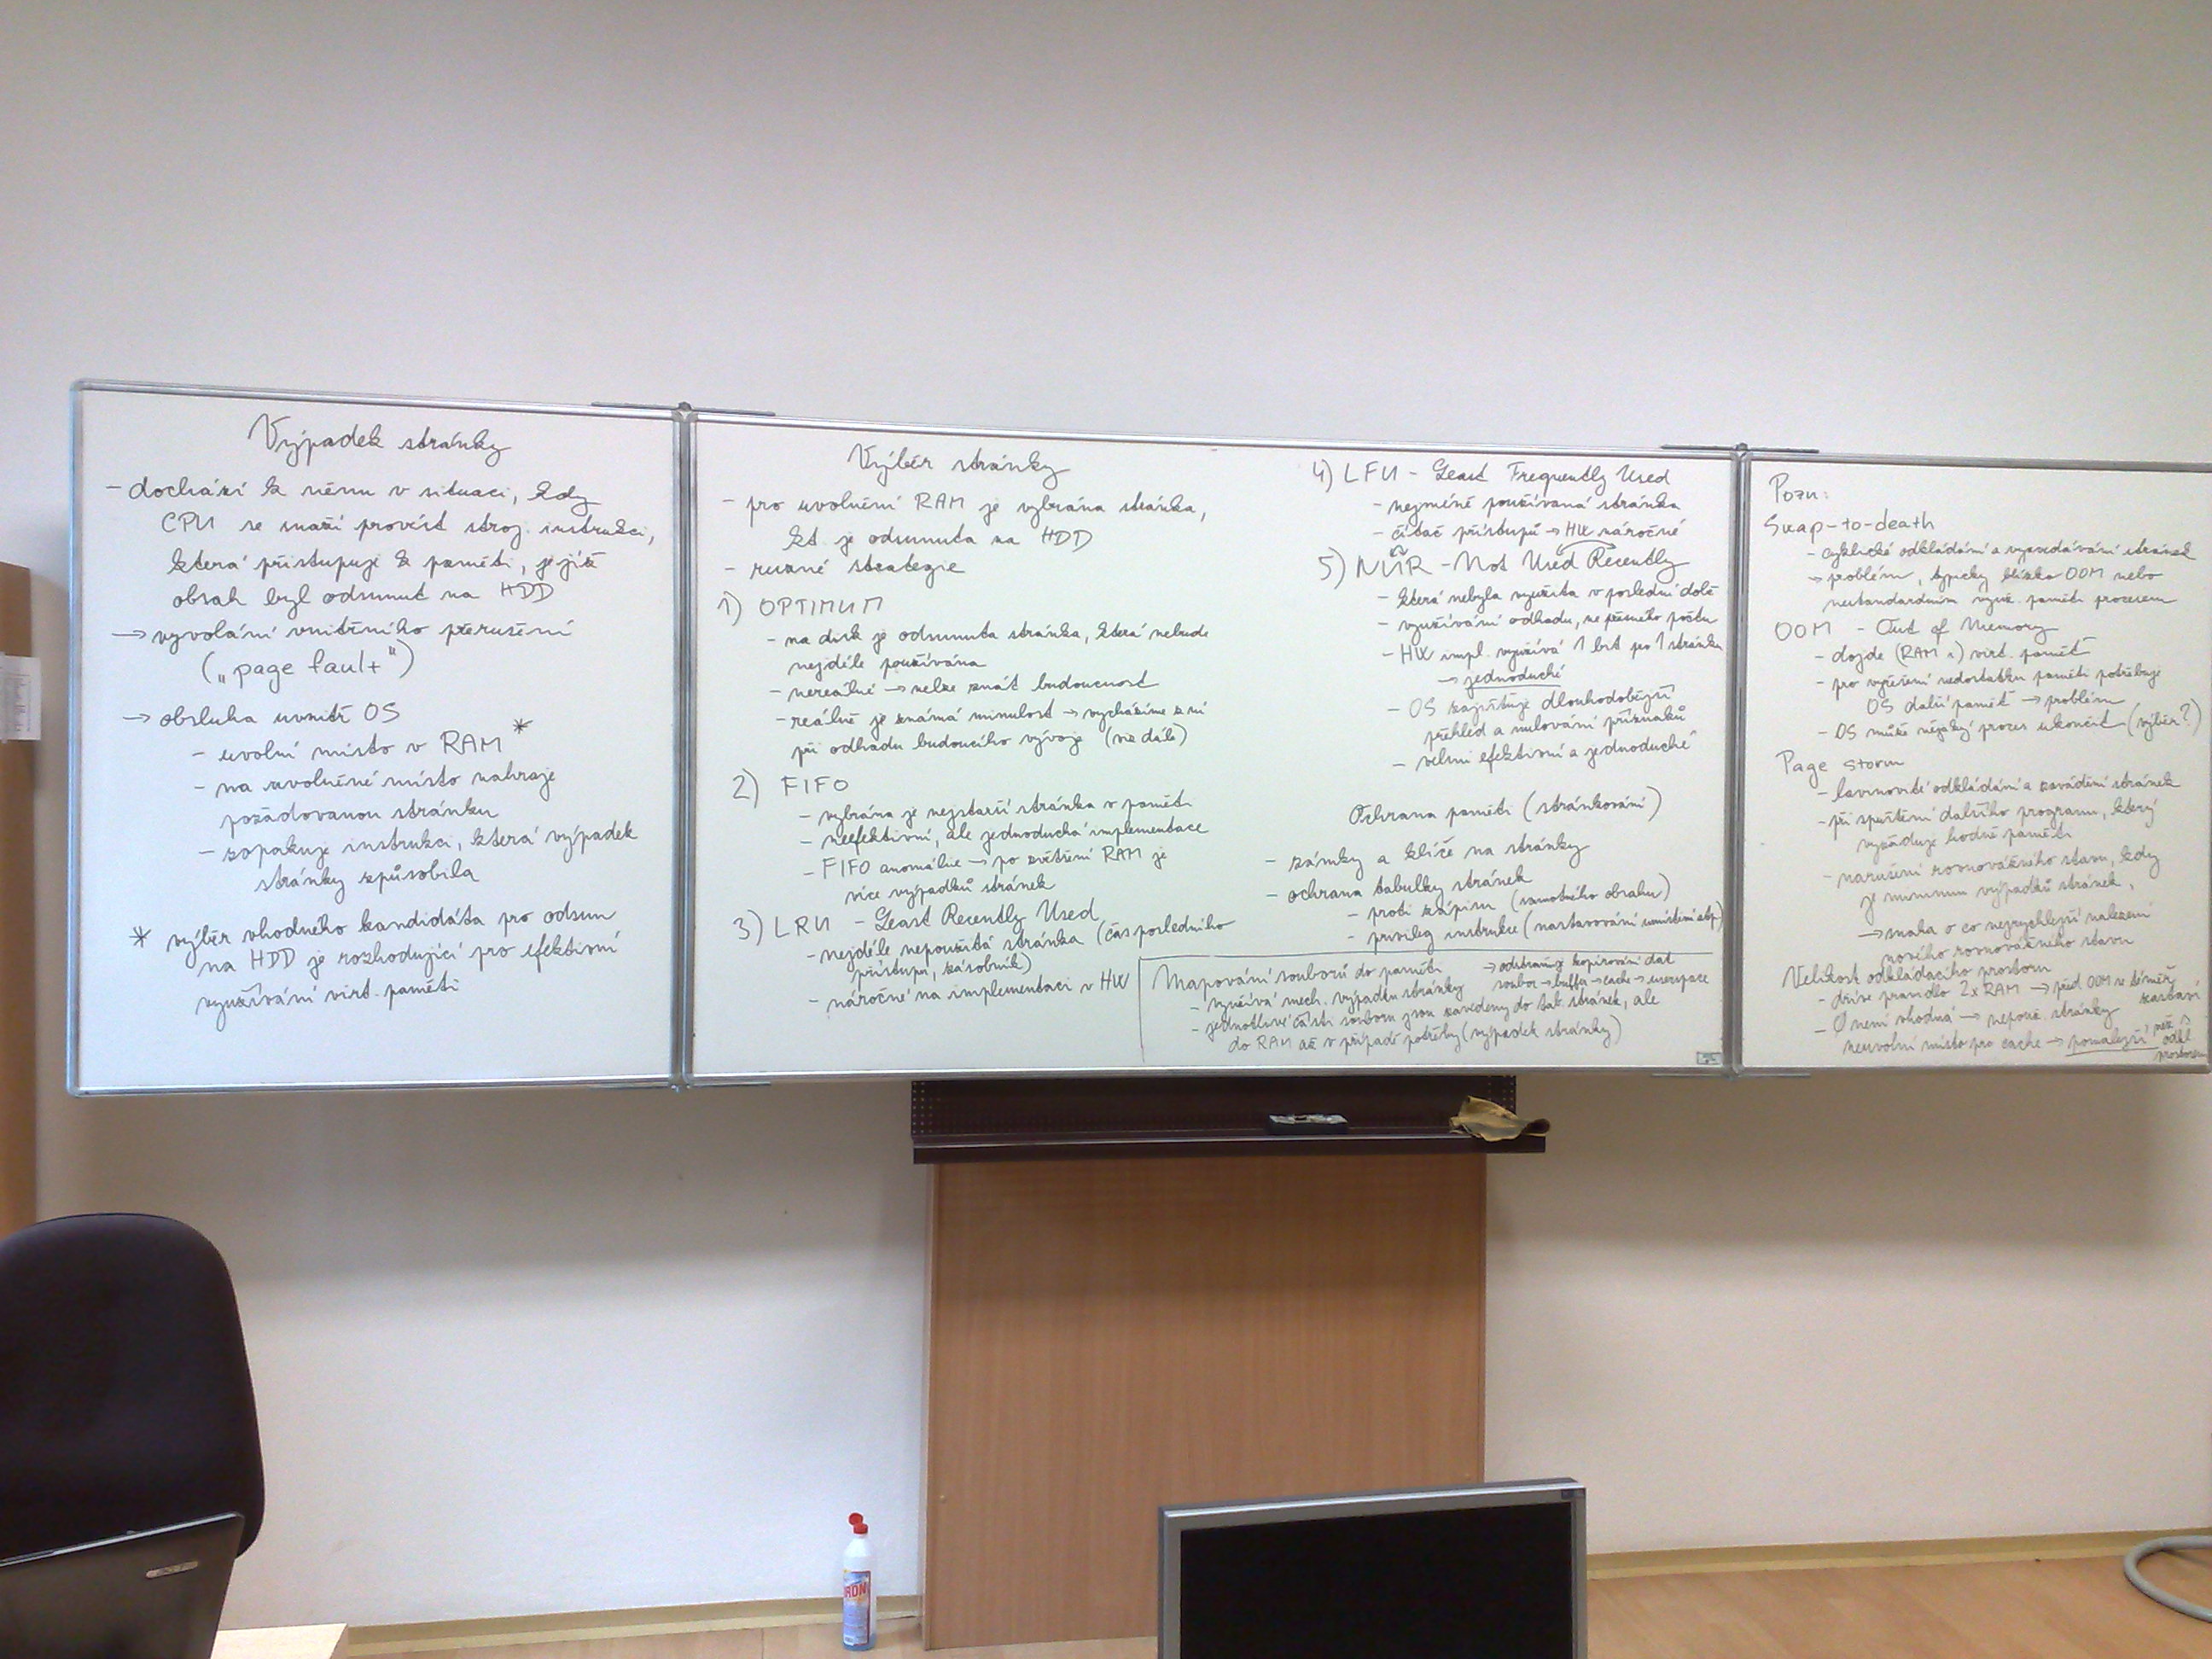 Výpadek stránky
- dochází k němu v situaci, kdy
CPU se snaží provést stroj. instrukci,
která přistupuje k paměti, jejíž
obsah byl odsunut na HDD
→ vyvolání vnitřního přerušení
("page fault")
→ obsluha uvnitř OS
- uvolní místo v RAM *
- na uvolněné místo nahraje
požadovanou stránku
- zopakuje instrukci, která výpadek
stránky způsobila
* výběr vhodného kandidáta pro odsun
na HDD je rozhodující pro efektivní
využívání virt. paměti
Výběr stránky
- pro uvolnění RAM je vybrána stránka,
kt. je odsunuta na HDD
- různé strategie
1) OPTIMUM
- na disk je odsunuta stránka, která nebude
nejdéle používána
- nereálné → nelze znát budoucnost
- reálně je známá minulost → vycházíme z ní
při odhadu budoucího vývoje (viz dále)
2) FIFO
- vybrána je nejstarší stránka v paměti
- neefektivní, ale jednoduchá implementace
- FIFO anomálie → po zvětšení RAM je
více výpadků stránek
3) LRU - Least Recently Used
- nejdéle nepoužitá stránka (čas posledního
přístupu, zásobník)
- náročné na implementaci v HW
4) LFU - Least Frequently Used
- nejméně používaná stránka
- čítač přístupů → HW náročné
5) NUR - Not Used Recently
- která nebyla využita v poslední době
- využívání odhadu, ne přesného počtu
- HW impl. využívá 1 bit pro 1 stránku
→ jednoduché
- OS zajišťuje dlouhodobější
přehled a nulování příznaků
- velmi efektivní a jednoduché
Ochrana paměti (stránkování)
- zámky a klíče na stránky
- ochrana tabulky stránek
- proti zápisu (samotného obsahu)
- privileg instrukce (nastavování umístění atp)
Mapování souborů do paměti
→ odstraňuje kopírování dat
soubor → buffer → cache → userspace
- využívá mech. výpadku stránky
- jednotlivé části souboru jsou zavedeny do tab. stránek, ale
do RAM až v případě potřeby (výpadek stránky)
Pozn:
Swap-to-death
- cyklické odkládání a vyzvedávání stránek
→ problém, typicky blízko OOM nebo
nestandardním využ. paměti procesem
OOM - Out of Memory
- dojde (RAM i) virt. paměť
- pro vyřešení nedostatku paměti potřebuje
OS další paměť → problém
- OS může nějaký proces ukončit (výběr?)
Page storm
- lavinovité odkládání a zavádění stránek
- při spuštění dalšího programu, který
vyžaduje hodně paměti
- narušení rovnovážného stavu, kdy
je minimum výpadků stránek,
→ snaha o co nejrychlejší nalezení
nového rovnovážného stavu
Velikost odkládacího prostoru
- dříve pravidlo 2x RAM → před OOM se téměř
zastaví
- 0 není vhodná → nepouž. stránky
neuvolní místo pro cache → pomalejší než s
odkl
prostorem